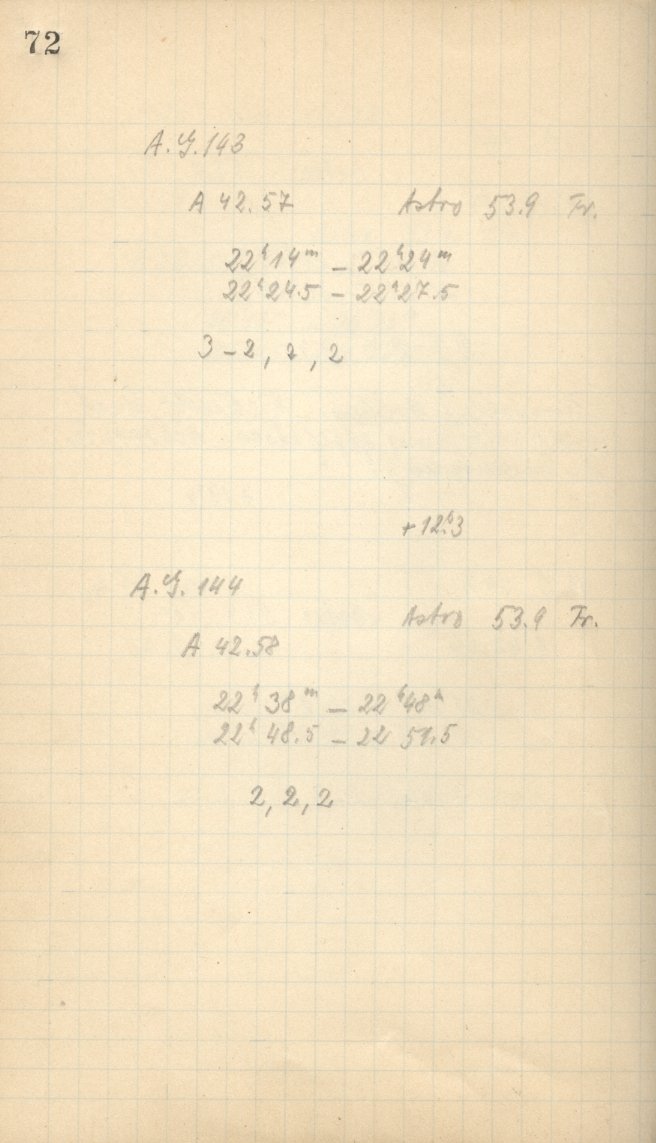 72
A.G. 143
A 42.57 Astro 53.9 Tr.
22ʰ14ᵐ – 22ʰ24ᵐ
22ʰ24.5 – 22ʰ27.5
3–2, 2, 2
+12ʰ.3
A.G. 144
Astro 53.9 Tr.
A 42.58
22ʰ38ᵐ – 22ʰ48ᵐ
22ʰ48.5 – 22 51.5
2, 2, 2